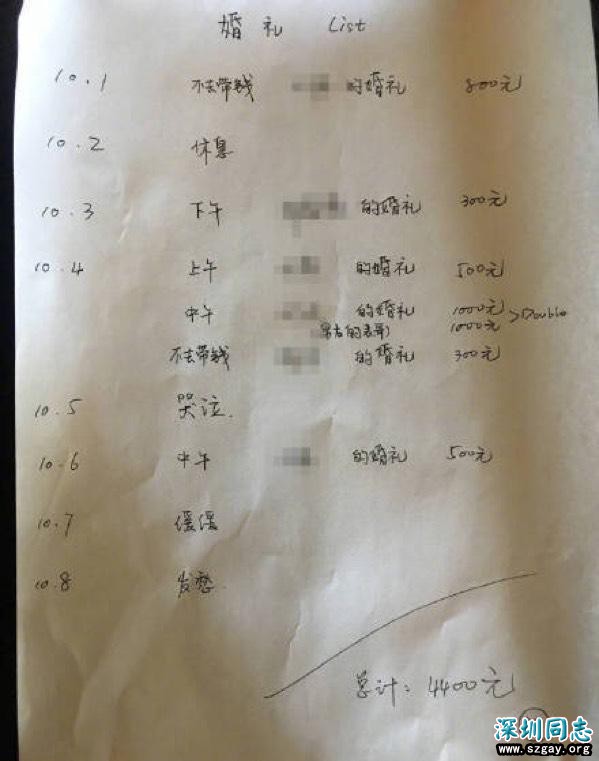 婚礼 List
10.1 不去带钱 的婚礼 800元
10.2 休息
10.3 下午 的婚礼 300元
10.4 上午 的婚礼 500元
中午 的婚礼 1000元 >Double
男友的表哥) 1000元
不去带钱 的婚礼 300元
10.5 哭泣.
10.6 中午 的婚礼 500元
10.7 缓缓
10.8 发愁.
总计: 4400元
深圳同志
www.szgay.org